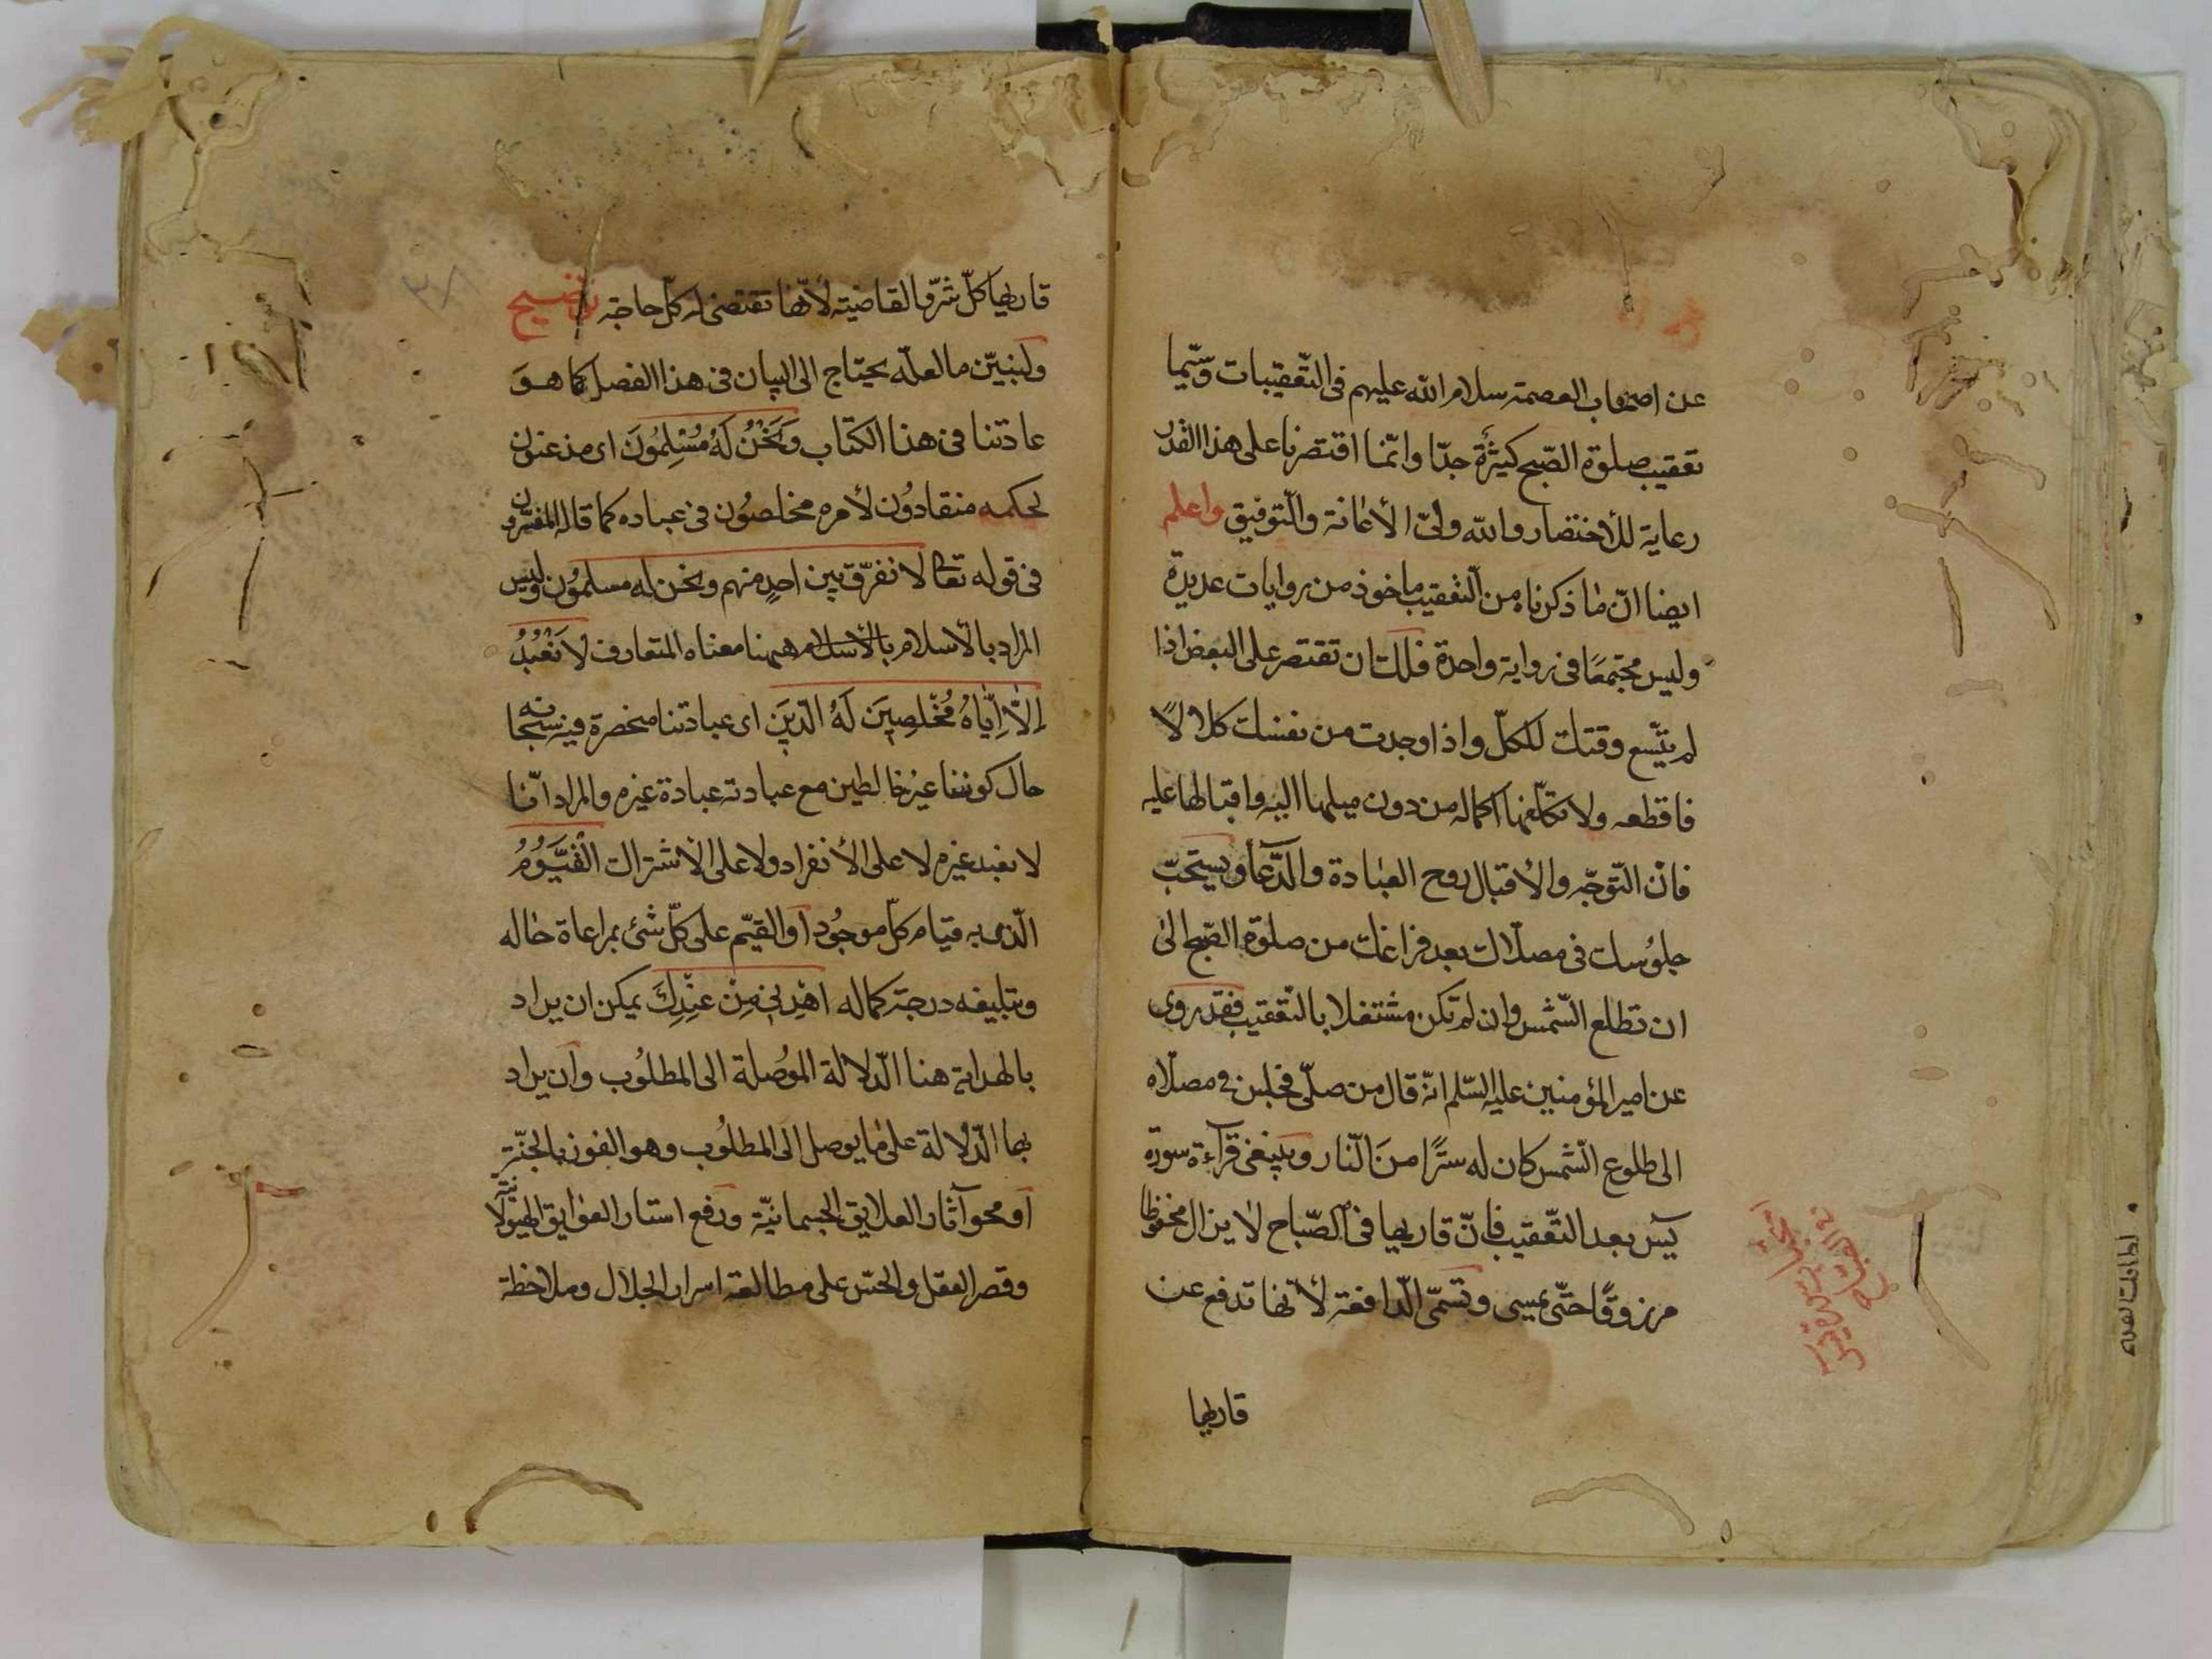 عن اصحاب العصمة سلام الله عليهم فى التّعقيبات وسيّما
تعقيب صلوة الصّبح كثيرة جدّا وانّما اقتصرنا على هذا القدر
رعاية للأختصار والله ولىّ الأعانة والتّوفيق واعلم
ايضا انّ ما ذكرناه من التّعقيب ماخوذ من روايات عديدة
وليس مجتمعًا فى رواية واحدة فلك ان تقتصر على البعض اذا
لم يتّسع وقتك للكلّ واذا وجدت من نفسك كلالاً
فاقطعه ولا تكلّفها اكماله من دون ميلها اليه واقبالها عليه
فانّ التّوجّه والأقبال روح العبادة والدّعآ ويستحبّ
جلوُسك فى مصلّاك بعد فراغك من صلوة الصّبح الى
ان تطلع الشّمس وان لم تكن مشتغلا بالتّعقيب فقد روى
عن امير المؤمنين عليه السّلم انّه قال من صلّى فجلس فى مصلّاه
الى طلوع الشّمس كان له سترًا من النّار وينبغى قرآءة سورة
يٓس بعد التّعقيب فانّ قاريها فى الصّباح لا يزال محفوظا
مرزوقًا حتّى يمسى وتسمّى الدّافعة لأنّها تدفع عن
قاريها
قاريها كلّ شرّ والقاضية لأنّها تقتضى له كلّ حاجة توضيح
ولنبيّن ما لعلّه يحتاج الى البيان فى هذا الفصل كما هو
عادتنا فى هذا الكتاب وَنَحْنُ لَهُ مُسْلِمُونَ اى مذعنون
لحكمه منقادوُن لأمره مخلصوُن فى عباده كما قاله المفسّرون
فى قوله تعالى لا نفرّق بين احدٍ منهم ونحن له مسلموُن وليس
المراد بالأسلام بالأسلام ههنا معناه المتعارف لاَ نَعْبُدُ
اِلاَّ اِيّاهُ مُخْلِصِينَ لَهُ الدّينَ اى عبادتنا منحصرة فيه سبحانه
حال كوننا غير خالطين مع عبادته عبادة غيره والمراد انّنا
لا نعبد غيره لا على الأنفراد ولا على الأشتراك الْقَيُّوُمُ
الّذى به قيام كلّ موجُود او القيّم على كلّ شئ بمراعاة حاله
وتبليغه درجة كماله اهْدِنِى مِنْ عِنْدِكَ يمكن ان يراد
بالهداية هنا الدّلالة الموُصلة الى المطلوُب وان يراد
بها الدّلالة على ما يوصل الى المطلوُب وهو الفوز بالجنّة
او محو آثار العلايق الجسمانيّة ورفع استار العوايق الهيولانيّة
وقصر العقل والحسّ على مطالعة اسرار الجلال وملاحظة